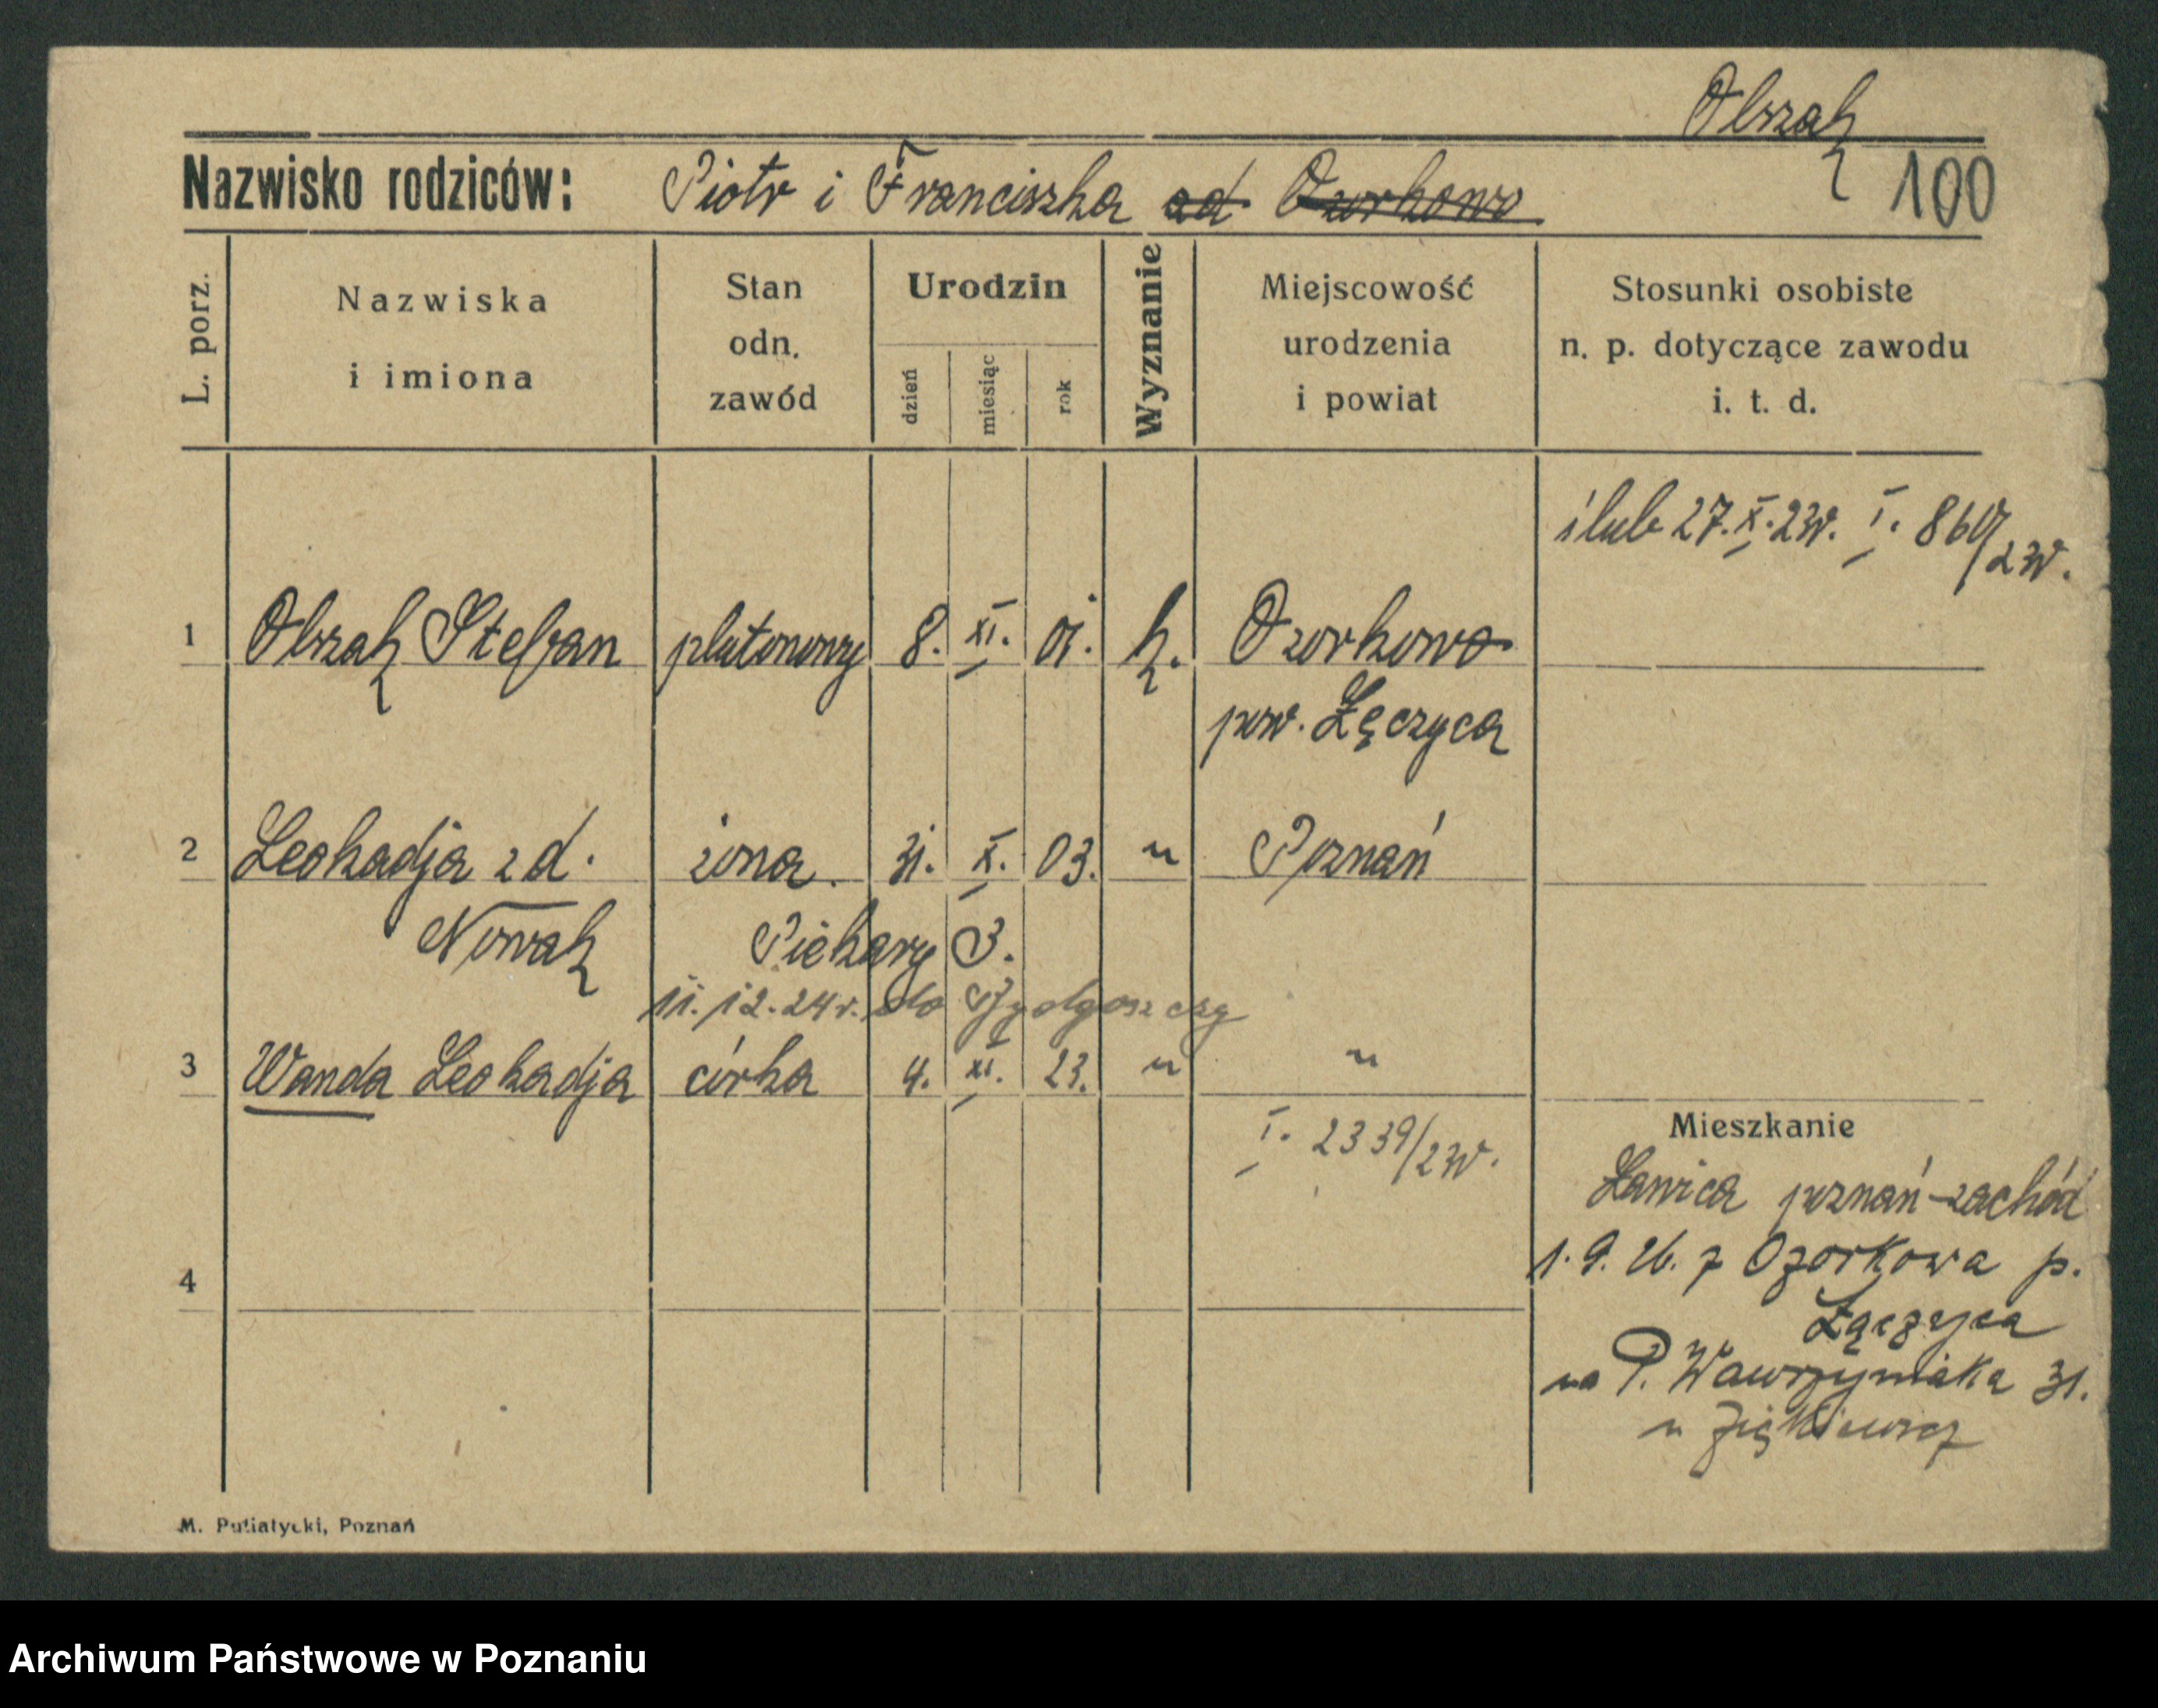 Olszak
Nazwisko rodziców: Piotr i Franciszka ad Ozorkowo
100
L. porz.
Nazwiska
i imiona
Stan
odn.
zawód
Urodzin
dzień
miesiąc
rok
Wyznanie
Miejscowość
urodzenia
i powiat
Stosunki osobiste
n. p. dotyczące zawodu
i. t. d.
ślub 27. X. 23r. I. 860/23r.
1 Olszak Stefan plutonowy 8. XI. 01. k. Ozorkowo
pow. Łęczyca
2 Leokadja z d. żona. 31. X. 03. " Poznań
Nowak Piekary 3.
11.12.24r. do Bydgoszczy
3 Wanda Leokadja córka 4. XI. 23. " "
I. 2339/23r.
Mieszkanie
Ławica poznań-zachód
1. 9. 26. z Ozorkowa p.
Łączyca
na P. Wawrzyniaka 31.
u
4
M. Putiatycki, Poznań
Archiwum Państwowe w Poznaniu